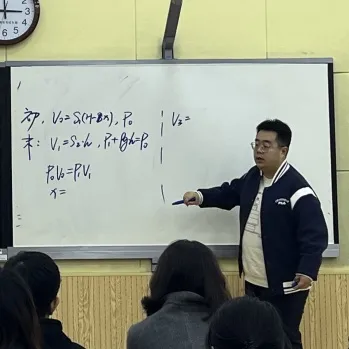 初, V₀=S₁(H-Bx), P₀
末: V₁=S₂·h, P₁+ρgh=P₀
P₀V₀=P₁V₁
x=
V₂=